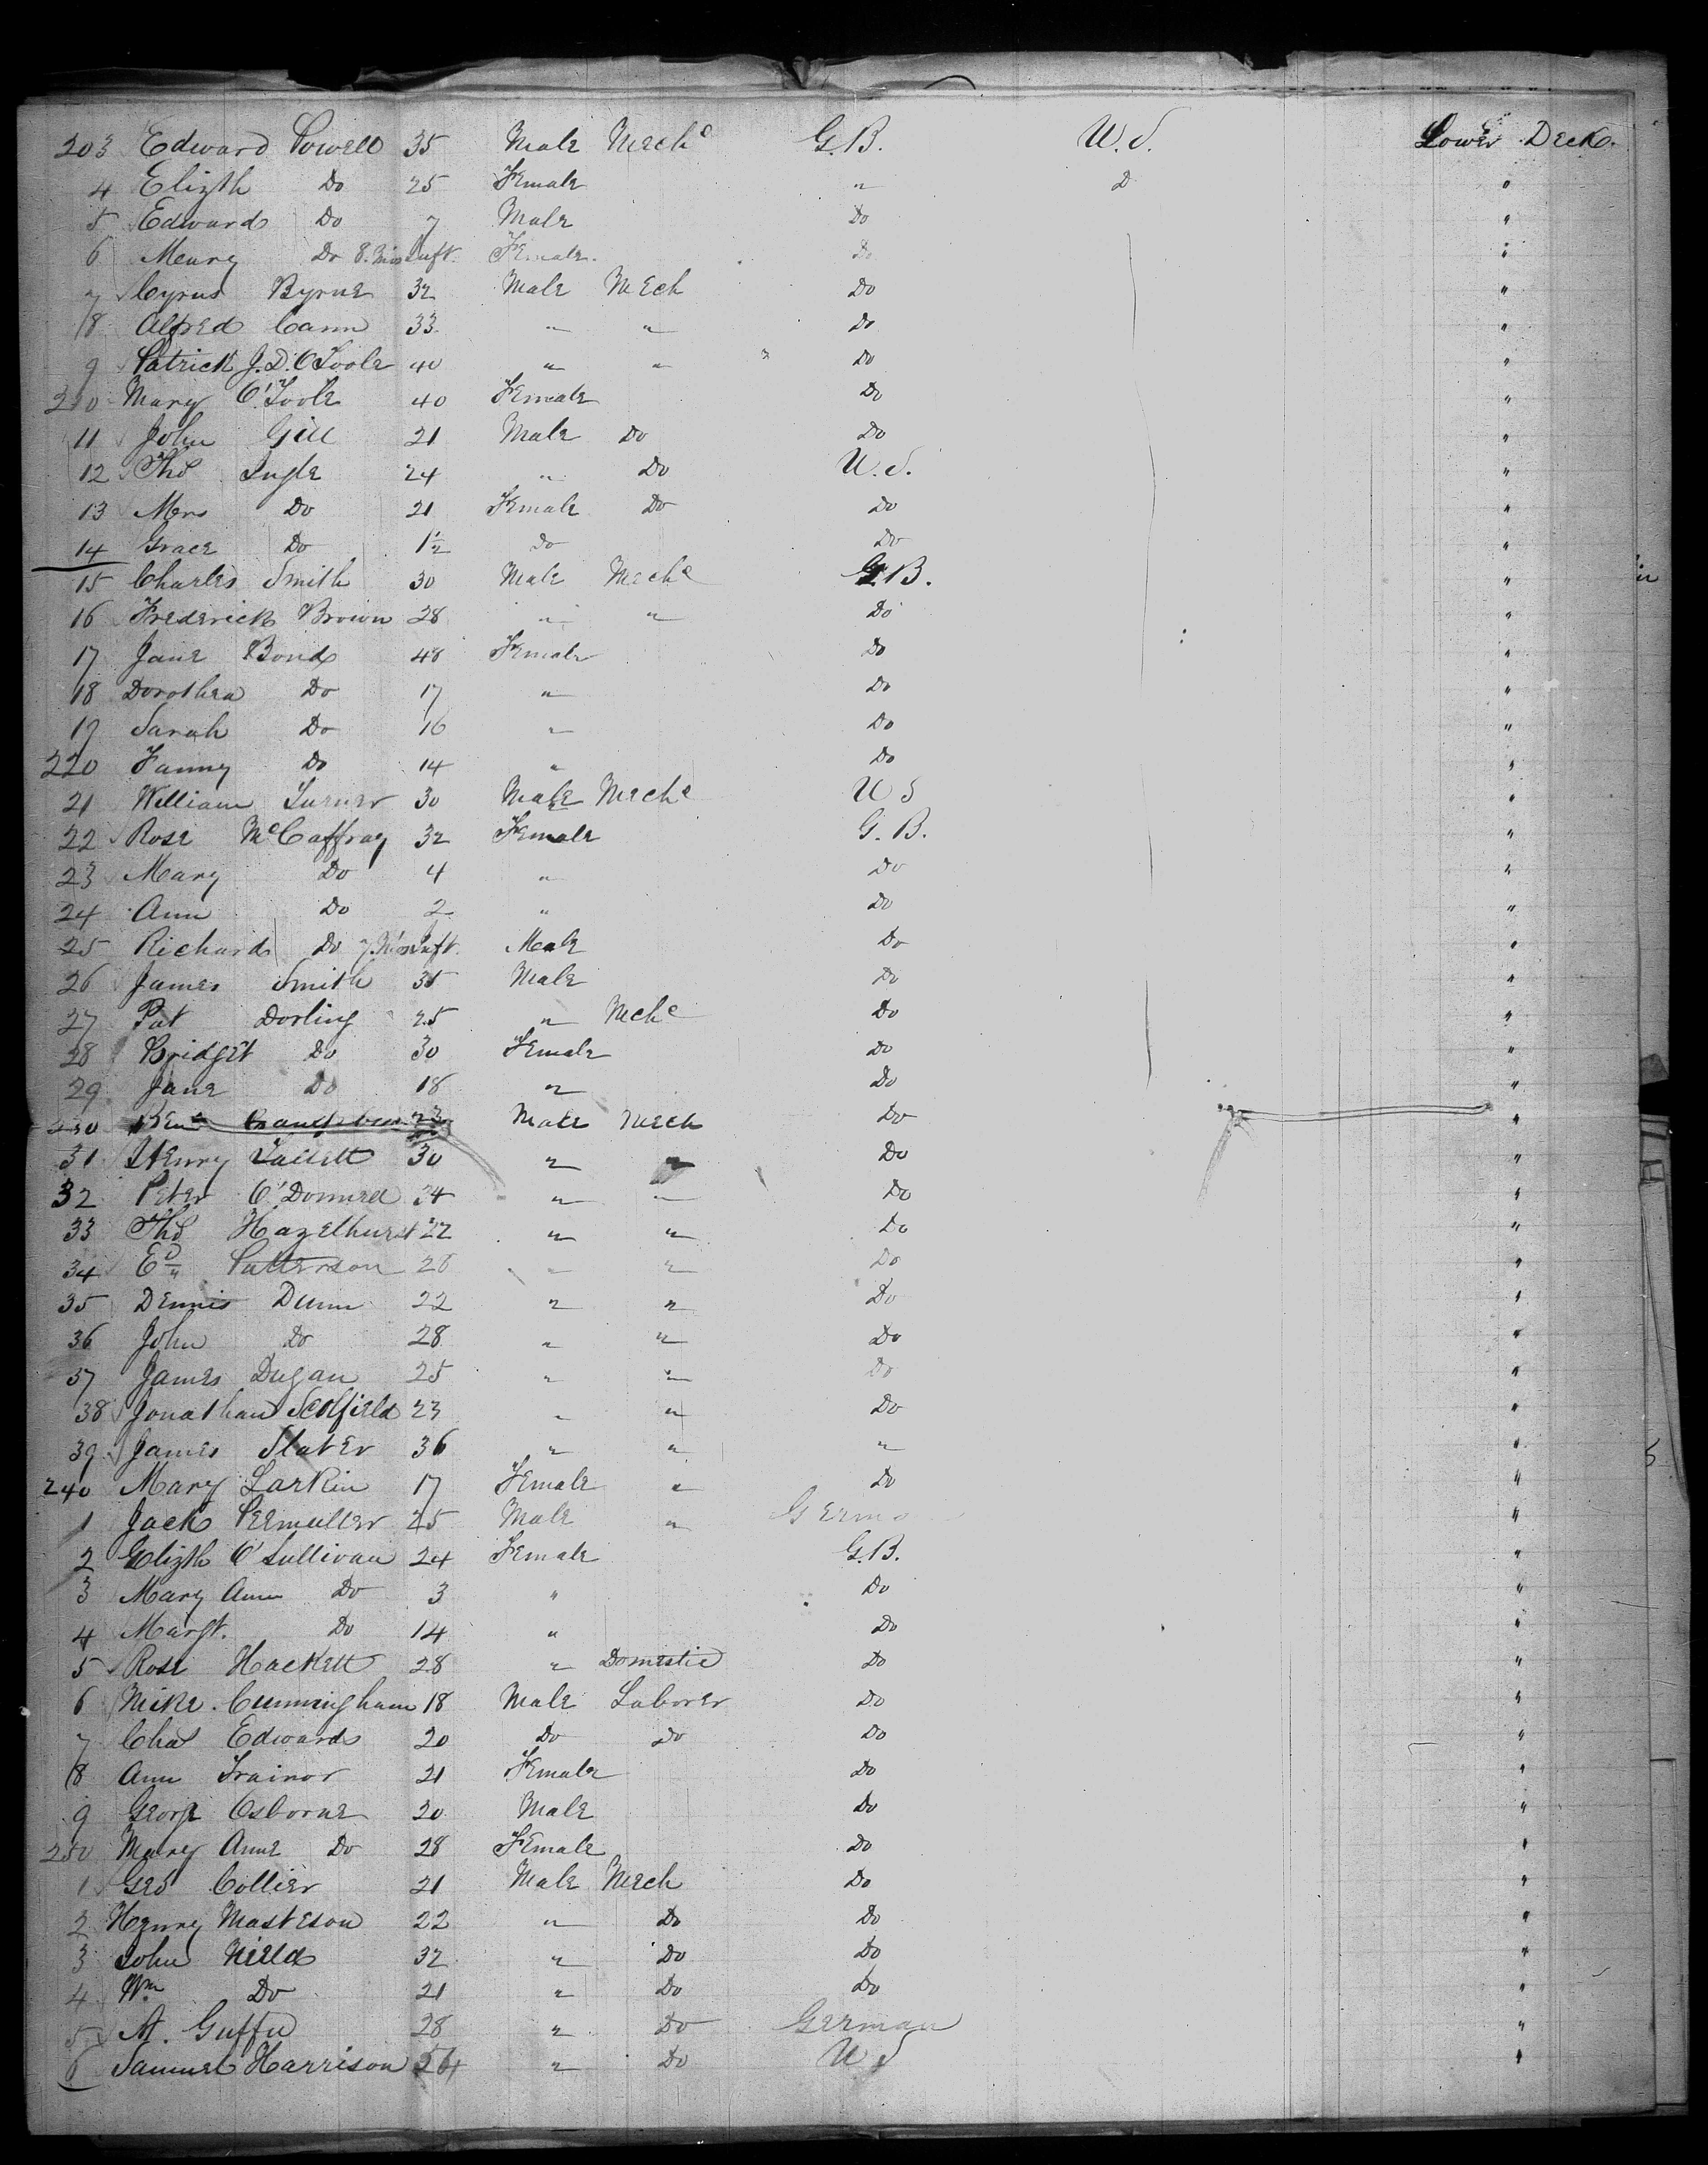 203 Edward Powell 35 Male Mech^c G.B. U.S. Lower Deck.
4 Elizth Do 25 Female " D "
5 Edward Do 7 Male Do "
6 Do 8. Mos Inft. Female. Do "
7 Cyrus Byrne 32 Male Mech Do "
8 Alfred Cann 33 " " Do "
9 Patrick J. D. O'Toole 40 " " Do "
210 Mary O'Toole 40 Female Do "
11 John Gill 21 Male Do Do "
12 Thos Ingle 24 " Do U.S. "
13 Mrs Do 21 Female Do Do "
14 Grace Do 1½ do Do "
15 Charles Smith 30 Male Mech^c G.B. "
16 Frederick Brown 28 " " Do "
17 Jane Bond 48 Female Do "
18 Dorothea Do 17 " Do "
19 Sarah Do 16 " Do "
220 Fanny Do 14 " Do "
21 William Turner 30 Male Mech^c U S "
22 Rose McCaffray 32 Female G.B. "
23 Mary Do 4 " Do "
24 Ann Do 2 " Do "
25 Richard Do 7. Mos Inft. Male Do "
26 James Smith 35 Male Do "
27 Pat Dorling 25 " Mech^c Do "
28 Bridget Do 30 Female Do "
29 Jane Do 18 " Do "
230 23 Male Mech Do "
31 Henry 30 " " Do "
32 Peter O'Donnell 24 " " Do "
33 Thos Hazelhurst 22 " " Do "
34 Ed Patterson 28 " " Do "
35 Dennis Dunn 22 " " Do "
36 John Do 28 " " Do "
37 James Dugan 25 " " Do "
38 Jonathan Scolfield 23 " " Do "
39 James Slater 36 " " " "
240 Mary Larkin 17 Female " Do "
1 Jack Peemuller 25 Male " Germ "
2 Elizth O'Sullivan 24 Female G.B. "
3 Mary Ann Do 3 " Do "
4 Margt. Do 14 " Do "
5 Rose Hackett 28 " Domestic Do "
6 Mike. Cunningham 18 Male Laborer Do "
7 Chas Edwards 20 Do Do Do "
8 Ann Trainor 21 Female Do "
9 George Osborne 20 Male Do "
250 Mary Anne Do 28 Female Do "
1 Geo Collier 21 Male Mech Do "
2 Henry Masteson 22 " Do Do "
3 John Nield 32 " Do Do "
4 Wm Do 21 " Do Do "
5 28 " Do German "
6 Samuel Harrison " Do U S "